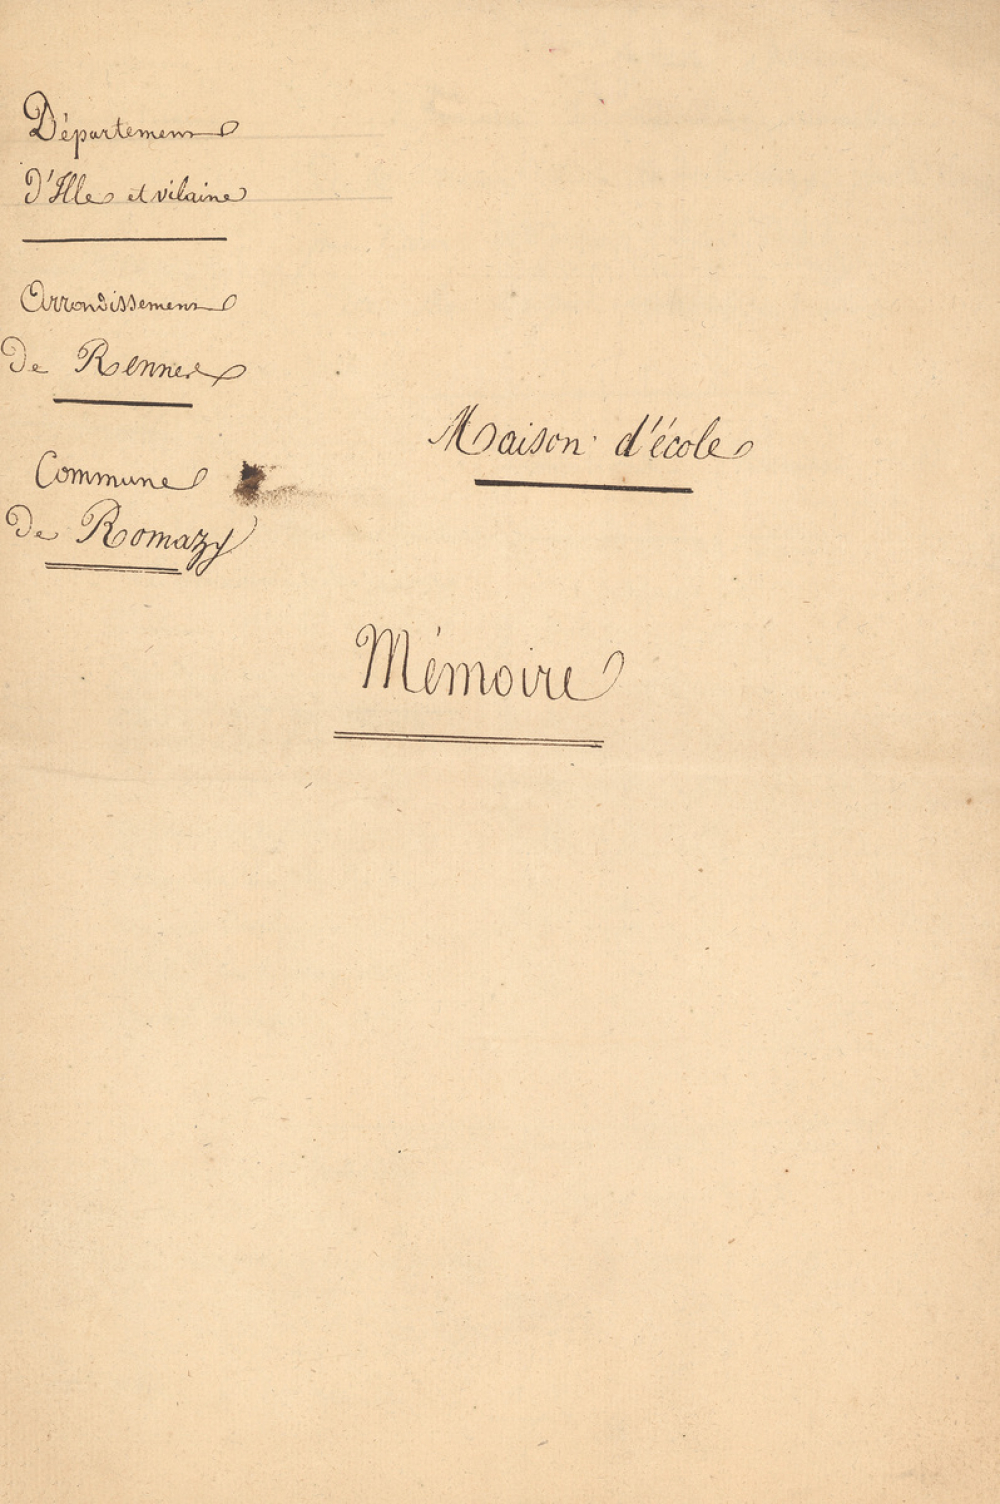 Département
d'Ille et vilaine
Arrondissement
de Rennes
Commune
de Romazy
Maison d'école
Mémoire